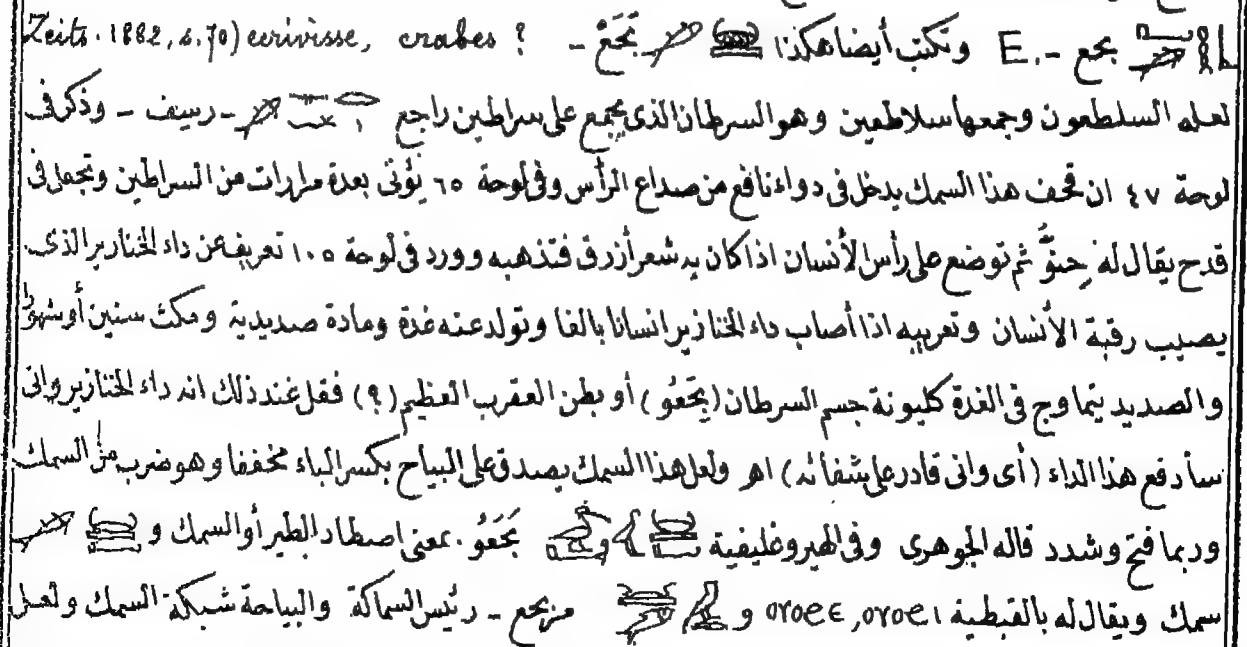 بحع -. E وتكتب أيضا هكذا بَحَعْ - Zeits. 1882, s. 70) ecrivisse, crabes ?
لعله السلطعون وجمعها سلاطعين وهو السرطان الذى يجمع على سراطين راجع - رسيف - وذكر فى
لوحة ٤٧ ان قحف هذا السمك يدخل فى دواء نافع من صداع الرأس وفى لوحة ٦٥ يؤتى بعدة مرارات من السراطين وتجعل فى
قدح يقال له حِنوَّ ثم توضع على رأس الأنسان اذا كان به شعر أزرق فتذهبه وورد فى لوحة ١٠٥ تعريف عن داء الخنازير الذى
يصيب رقبة الأنسان وتعريبه اذا أصاب داء الخنازير انسانا بالغا وتولد عنه غدة ومادة صديدية ومكث سنين أو شهورا
والصديد يتماوج فى الغدة كليونة جسم السرطان (بِحَعُو) أو بطن العقرب العظيم (؟) فقل عند ذلك انه داء الخنازير وانى
سأدفع هذا الداء (أى وانى قادر على شفائه) اهـ ولعل هذا السمك يصدق على البياح بكسر الباء مخففا وهو ضرب من السمك
وربما فتح وشدد قاله الجوهرى وفى الهيروغليفية بَحَعُو بمعنى اصطاد الطير أو السمك و
سمك ويقال له بالقبطية ⲟⲩⲟϩⲉ, ⲟⲩⲟϩⲓ و مزبحع - رئيس السماكة والبياحة شبكة السمك ولعل